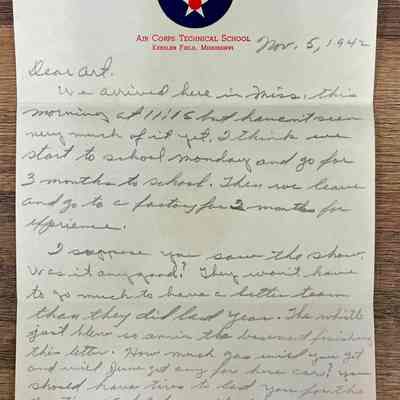 AIR CORPS TECHNICAL SCHOOL
KEESLER FIELD, MISSISSIPPI
Nov. 5, 1942
Dear Art.
We arrived here in Miss. this
morning at 11:15 but haven't seen
very much of it yet. I think we
start to school Monday and go for
3 months to school. Then we leave
and go to a factory for 2 months for
experience.
I suppose you saw the show.
Was it any good? They won't have
to go much to have a better team
than they did last year. The whistle
just blew so am in the basement finishing
this letter. How much gas will you get
and will June get any for her car? You
should have tires to last you for the